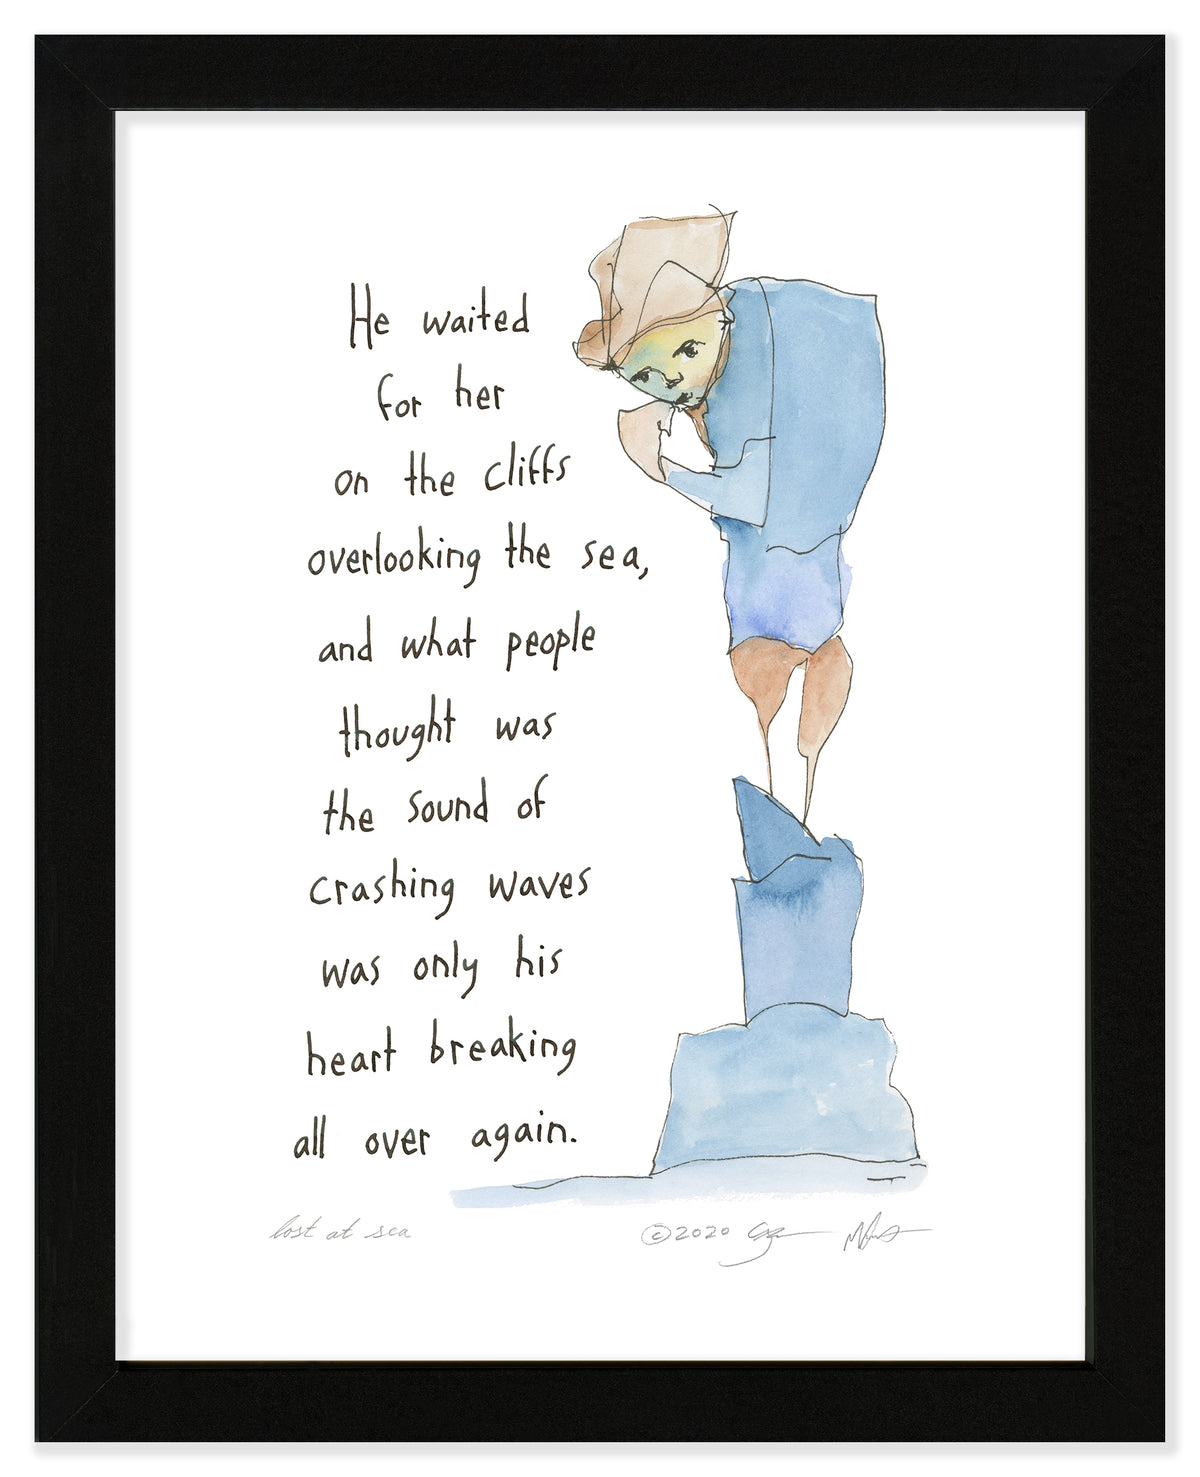 He waited
for her
on the cliffs
overlooking the sea,
and what people
thought was
the sound of
crashing waves
was only his
heart breaking
all over again.
lost at sea
©2020